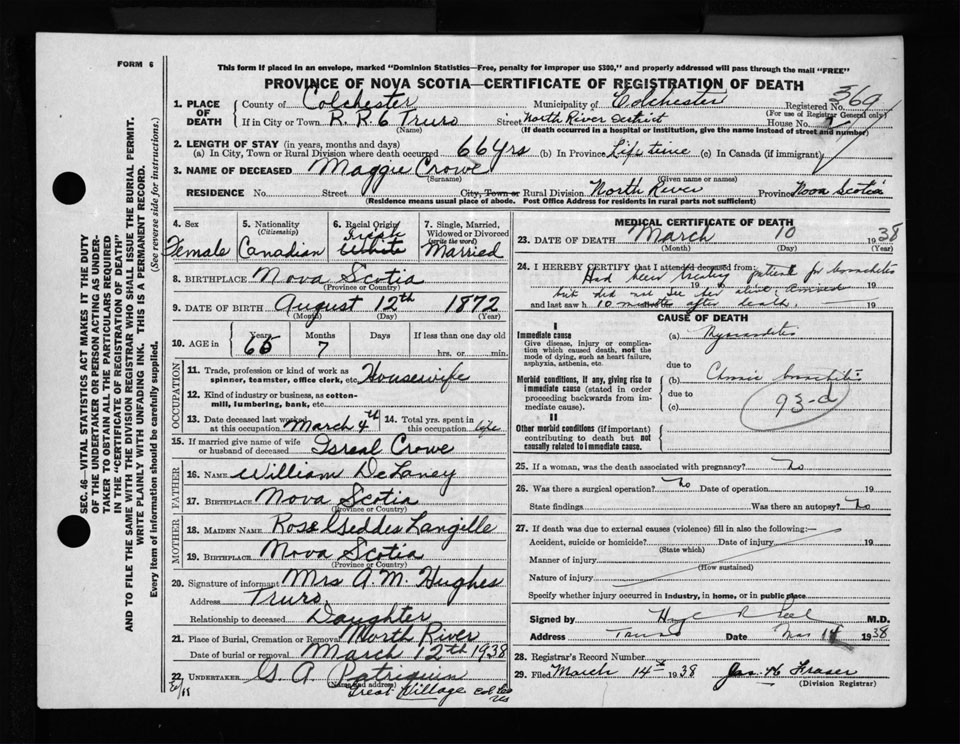 FORM 6
This form if placed in an envelope, marked "Dominion Statistics—Free, penalty for improper use $300," and properly addressed will pass through the mail "FREE"
PROVINCE OF NOVA SCOTIA—CERTIFICATE OF REGISTRATION OF DEATH
1. PLACE OF DEATH County of Colchester Municipality of Colchester Registered No. 369
(For use of Registrar General only)
If in City or Town R.R.6 Truro Street North River District House No.
(Name) (If death occurred in a hospital or institution, give the name instead of street and number)
2. LENGTH OF STAY (in years, months and days)
(a) In City, Town or Rural Division where death occurred 66 yrs (b) In Province Life time (c) In Canada (if immigrant)
3. NAME OF DECEASED Maggie Crowe
(Surname) (Given name or names)
RESIDENCE No. Street City, Town or Rural Division North River Province Nova Scotia
(Residence means usual place of abode. Post Office Address for residents in rural parts not sufficient)
4. Sex 5. Nationality 6. Racial Origin 7. Single, Married, Widowed or Divorced
(Citizenship) (write the word)
Female Canadian White Married
8. BIRTHPLACE Nova Scotia
(Province or Country)
9. DATE OF BIRTH August 12th 1872
(Month) (Day) (Year)
10. AGE in Years Months If less than one day old
65 7 hrs. or min.
OCCUPATION
11. Trade, profession or kind of work as spinner, teamster, office clerk, etc. Housewife
12. Kind of industry or business, as cotton-mill, lumbering, bank, etc.
13. Date deceased last worked at this occupation March 4th 14. Total yrs. spent in this occupation life
15. If married give name of wife or husband of deceased Isreal Crowe
FATHER
16. NAME William DeLaney
17. BIRTHPLACE Nova Scotia
(Province or Country)
MOTHER
18. MAIDEN NAME Rose Geddes Langille
19. BIRTHPLACE Nova Scotia
(Province or Country)
20. Signature of informant Mrs A. M. Hughes
Address Truro
Relationship to deceased Daughter
21. Place of Burial, Cremation or Removal North River
Date of burial or removal March 12th 1938
22. UNDERTAKER G. A. Patriquin
(Name and address)
Great Village Col Co
NS
MEDICAL CERTIFICATE OF DEATH
23. DATE OF DEATH March 10 1938
(Month) (Day) (Year)
24. I HEREBY CERTIFY that I attended deceased from:
Had been treating patient for bronchitis
19 19
but did not see her alive. Arrived
and last saw h 10 minutes after death. 19
CAUSE OF DEATH
I
Immediate cause
Give disease, injury or complication which caused death, not the mode of dying, such as heart failure, asphyxia, asthenia, etc.
(a) Myocarditis
due to
Morbid conditions, if any, giving rise to immediate cause (stated in order proceeding backwards from immediate cause).
(b) Chronic bronchitis
due to
(c) 93-d
II
Other morbid conditions (if important) contributing to death but not causally related to immediate cause.
25. If a woman, was the death associated with pregnancy? No
26. Was there a surgical operation? No Date of operation 19
State findings Was there an autopsy? No
27. If death was due to external causes (violence) fill in also the following:—
Accident, suicide or homicide? Date of injury 19
(State which)
Manner of injury
(How sustained)
Nature of injury
Specify whether injury occurred in industry, in home, or in public place
Signed by M.D.
Address Truro Date Mar 14 1938
28. Registrar's Record Number
29. Filed March 14th 1938 Jas. H. Fraser
(Division Registrar)
SEC. 46—VITAL STATISTICS ACT MAKES IT THE DUTY
OF THE UNDERTAKER OR PERSON ACTING AS UNDER-
TAKER TO OBTAIN ALL THE PARTICULARS REQUIRED
IN THE "CERTIFICATE OF REGISTRATION OF DEATH"
AND TO FILE THE SAME WITH THE DIVISION REGISTRAR WHO SHALL ISSUE THE BURIAL PERMIT.
WRITE PLAINLY WITH UNFADING INK. THIS IS A PERMANENT RECORD.
Every item of information should be carefully supplied. (See reverse side for instructions.)